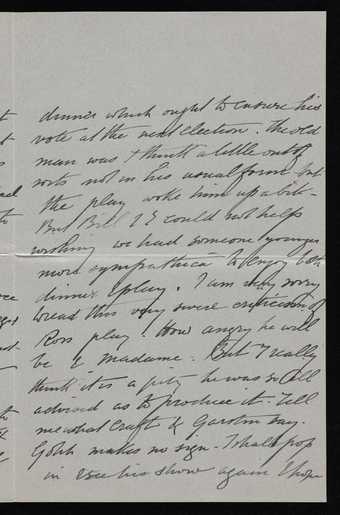 dinner which ought to ensure his
vote at the next election. The old
man was I think a little out of
sorts not in his usual form but
the play woke him up a bit -
But Bill & I could not help
wishing we had someone younger
more sympathica to enjoy both
dinner & play. I am very sorry
to read this very severe criticism of
Ross play. How angry he will
be & Madame. But I really
think it is a pity he was so ill
advised as to produce it. Tell
me what Craft & Garston say.
makes no sign. I shall pop
in & see his show again I hope